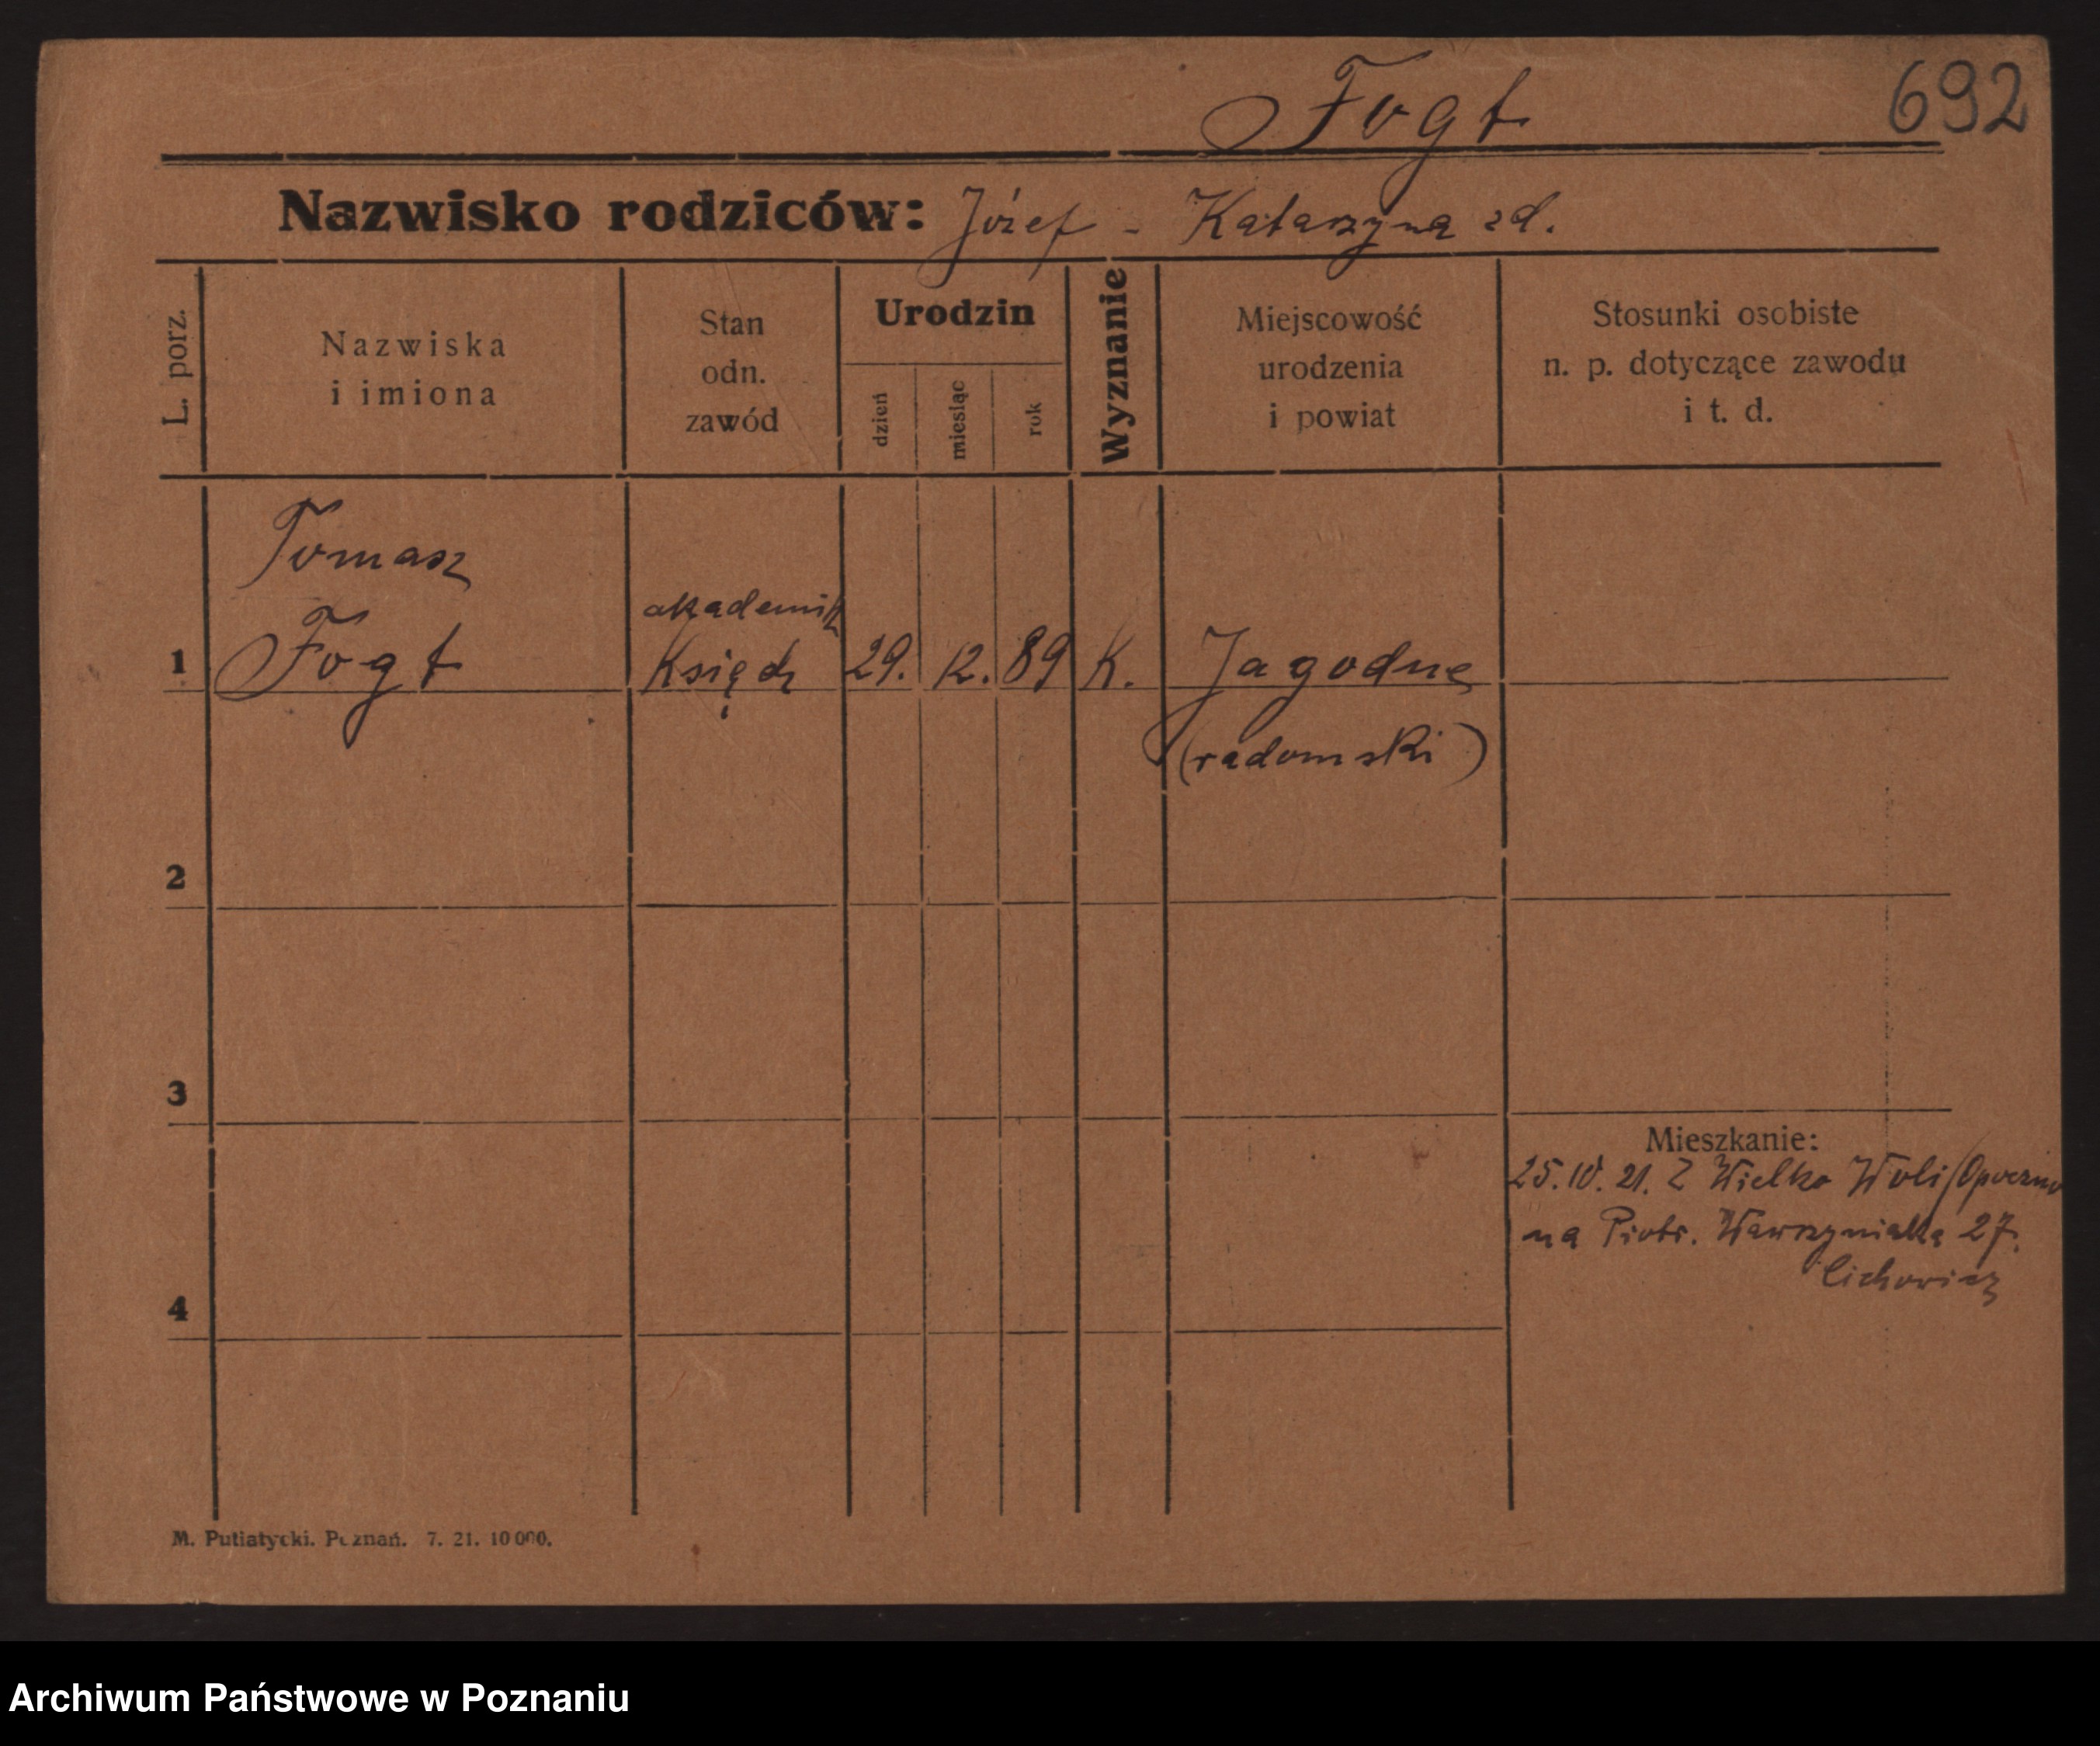 Fogt
692
Nazwisko rodziców: Józef - Katarzyna zd.
L. porz.
Nazwiska
i imiona
Stan
odn.
zawód
Urodzin
dzień
miesiąc
rok
Wyznanie
Miejscowość
urodzenia
i powiat
Stosunki osobiste
n. p. dotyczące zawodu
i t. d.
Tomasz
akademik
1 Fogt Ksiądz 29. 12. 89 K. Jagodne
(radomski)
2
3
Mieszkanie:
25. 10. 21. Z Wielka Woli/Opoczno
na Piotr. Wawrzyniaka 27.
Cichowicz
4
M. Putiatycki. Poznań. 7. 21. 10 000.
Archiwum Państwowe w Poznaniu